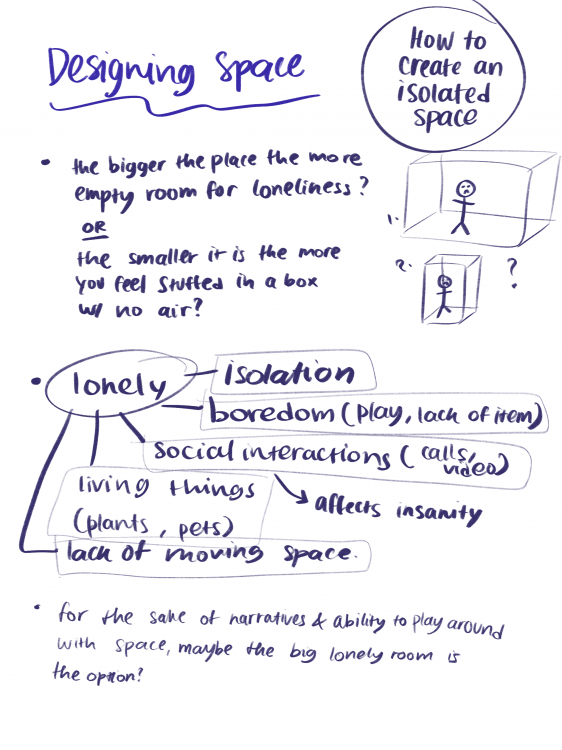 Designing space
How to
create an
isolated
space
• the bigger the place the more
empty room for loneliness?
OR
the smaller it is the more
you feel stuffed in a box
w/ no air?
1.
2.
?
• lonely
isolation
boredom (play, lack of item)
social interactions (calls,
video)
affects insanity
living things
(plants, pets)
lack of moving space.
• for the sake of narratives & ability to play around
with space, maybe the big lonely room is
the option?